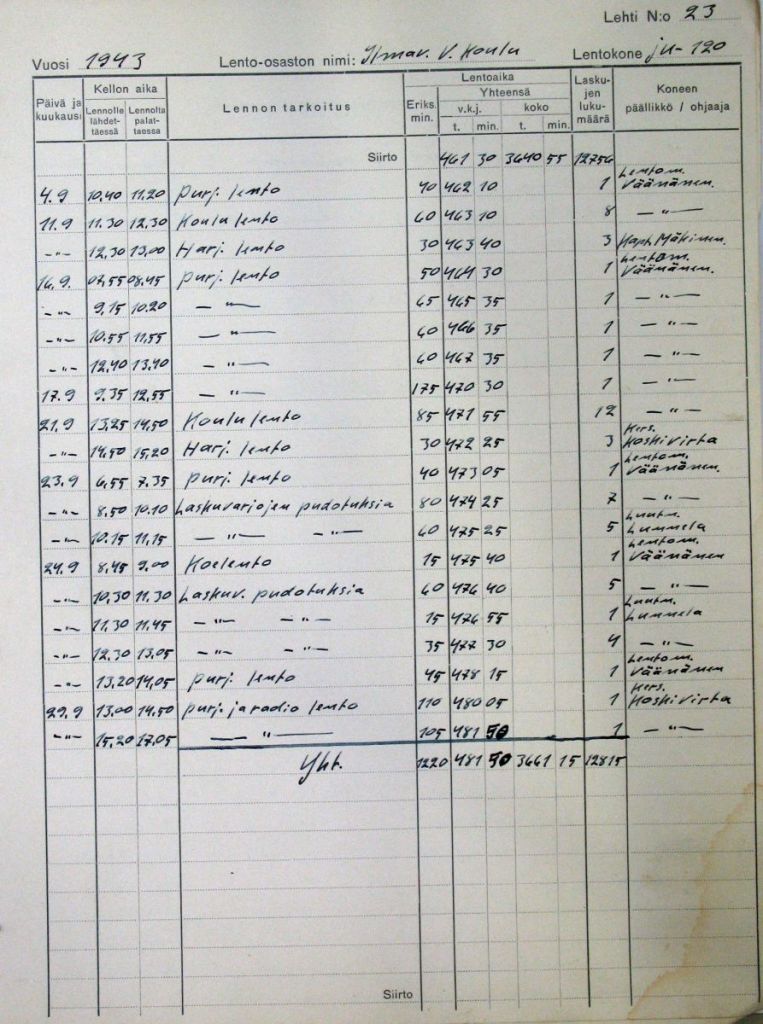 Lehti N:o 23
Vuosi 1943 Lento-osaston nimi: Ilmav. V. Koulu Lentokone ju-120
Päivä ja kuukausi Kellon aika Lennolle lähdettäessä Lennolta palattaessa Lennon tarkoitus Lentoaika Eriks. min. Yhteensä v.k.j. t. min. koko t. min. Laskujen lukumäärä Koneen päällikkö / ohjaaja
Siirto 461 30 3640 55 12756
4.9 10.40 11.20 Purj. lento 40 462 10 1 Lentom. Väänänen.
11.9 11.30 12.30 Koulu lento 60 463 10 8 — " —
— " — 12.30 13.00 Harj. lento 30 463 40 3 Kapt. Mäkinen.
16.9. 07.55 08.45 Purj. lento 50 464 30 1 Lentom. Väänänen.
— " — 9.15 10.20 — " — 65 465 35 1 — " —
— " — 10.55 11.55 — " — 60 466 35 1 — " —
— " — 12.40 13.40 — " — 60 467 35 1 — " —
17.9 9.35 12.55 — " — 175 470 30 1 — " —
21.9 13.25 14.50 Koulu lento 85 471 55 12 — " —
— " — 14.50 15.20 Harj. lento 30 472 25 3 Kers. Koskivirta
23.9 6.55 7.35 Purj. lento 40 473 05 1 Lentom. Väänänen.
— " — 8.50 10.10 Laskuvarjojen pudotuksia 80 474 25 7 — " —
— " — 10.15 11.15 — " — — " — 60 475 25 5 Luutn. Lummela
24.9 8.45 9.00 Koelento 15 475 40 1 Lentom. Väänänen
— " — 10.30 11.30 Laskuv. pudotuksia 60 476 40 5 — " —
— " — 11.30 11.45 — " — — " — 15 476 55 1 Luutn. Lummela
— " — 12.30 13.05 — " — — " — 35 477 30 4 — " —
— " — 13.20 14.05 Purj. lento 45 478 15 1 Lentom. Väänänen
29.9 13.00 14.50 Purj. ja radio lento 110 480 05 1 Kers. Koskivirta
— " — 15.20 17.05 — " — 105 481 50 1 — " —
Yht. 1220 481 50 3661 15 12815
Siirto